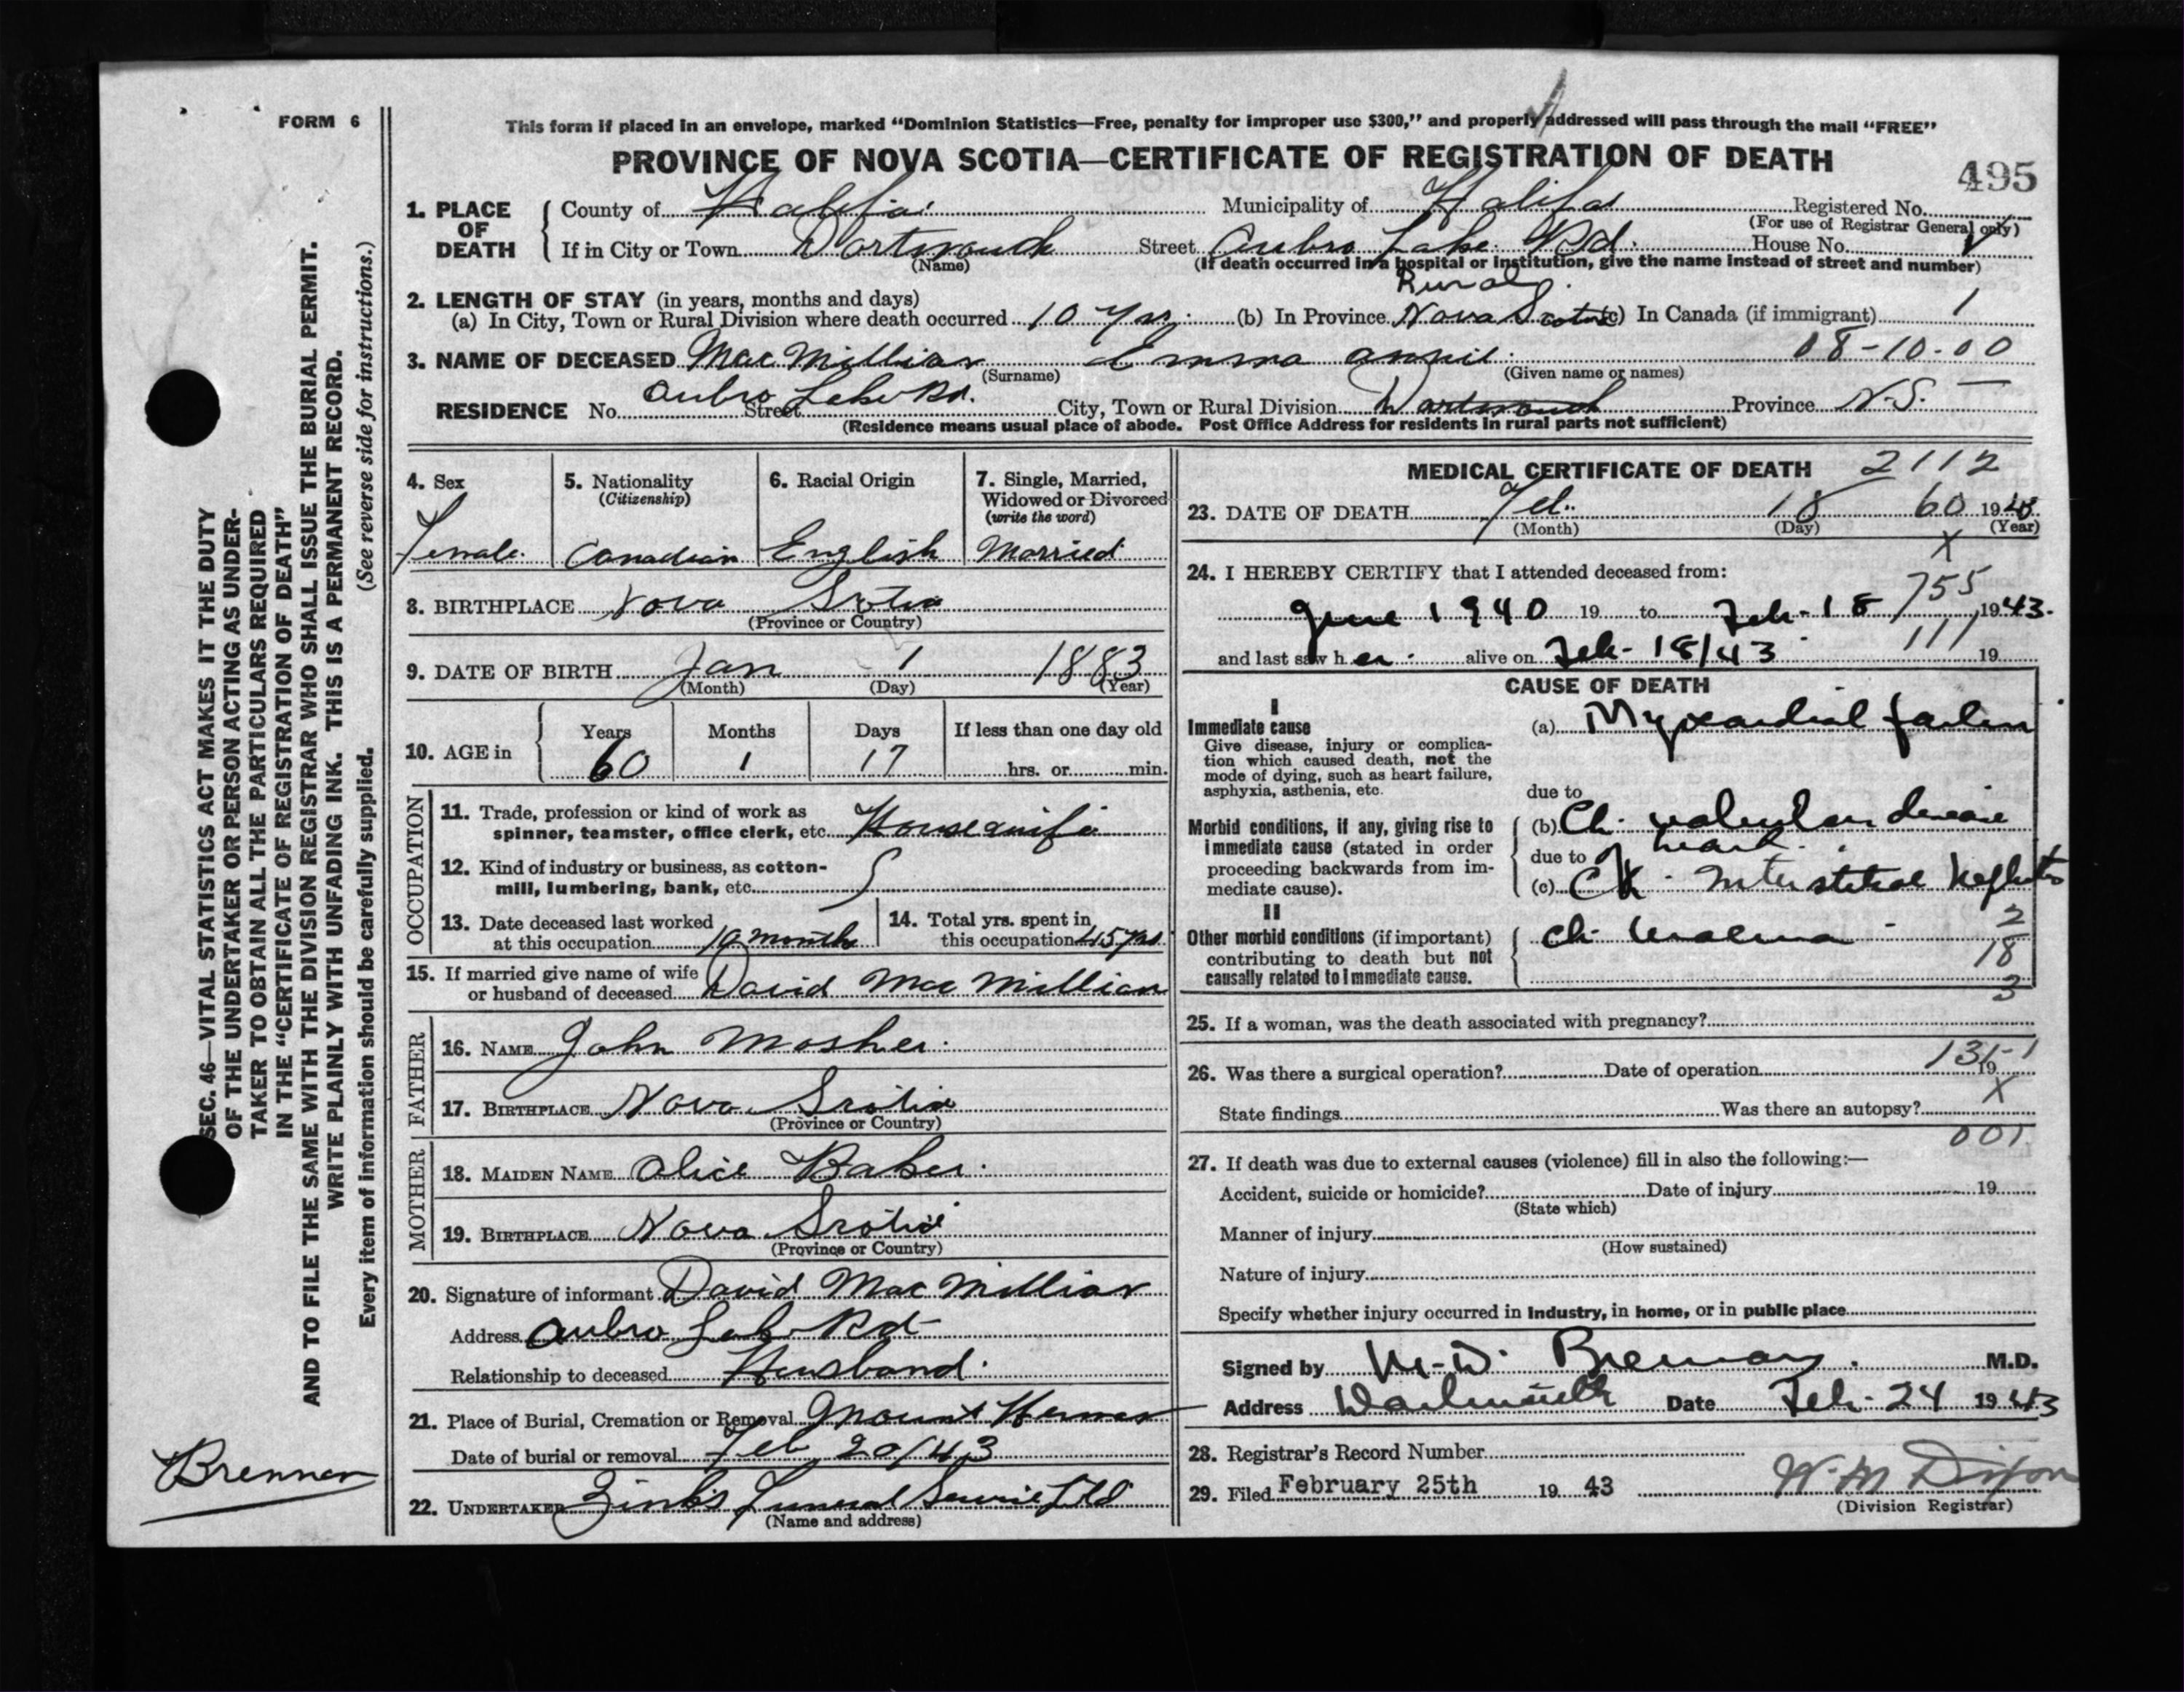 FORM 6
This form if placed in an envelope, marked “Dominion Statistics—Free, penalty for improper use $300,” and properly addressed will pass through the mail “FREE”
PROVINCE OF NOVA SCOTIA—CERTIFICATE OF REGISTRATION OF DEATH
495
1. PLACE OF DEATH
County of Halifax Municipality of Halifax Registered No.
(For use of Registrar General only)
If in City or Town Dartmouth Street Lake Rd. House No.
(Name) (If death occurred in a hospital or institution, give the name instead of street and number)
Rural
2. LENGTH OF STAY (in years, months and days)
(a) In City, Town or Rural Division where death occurred 10 yrs. (b) In Province Nova Scotia (c) In Canada (if immigrant) 1
3. NAME OF DECEASED MacMillian Emma 08-10-00
(Surname) (Given name or names)
RESIDENCE No. Lake Rd. Street City, Town or Rural Division Dartmouth Province N.S. —
(Residence means usual place of abode. Post Office Address for residents in rural parts not sufficient)
4. Sex
Female
5. Nationality
(Citizenship)
Canadian
6. Racial Origin
English
7. Single, Married,
Widowed or Divorced
(write the word)
Married
8. BIRTHPLACE Nova Scotia
(Province or Country)
9. DATE OF BIRTH Jan 1 1883
(Month) (Day) (Year)
10. AGE in
Years Months Days If less than one day old
60 1 17 hrs. or min.
OCCUPATION
11. Trade, profession or kind of work as
spinner, teamster, office clerk, etc. Housewife
12. Kind of industry or business, as cotton-
mill, lumbering, bank, etc.
13. Date deceased last worked
at this occupation 10 month
14. Total yrs. spent in
this occupation 45 yrs
15. If married give name of wife
or husband of deceased David MacMillian
FATHER
16. NAME John Mosher
17. BIRTHPLACE Nova Scotia
(Province or Country)
MOTHER
18. MAIDEN NAME Alice Baker
19. BIRTHPLACE Nova Scotia
(Province or Country)
20. Signature of informant David MacMillian
Address Lake Rd
Relationship to deceased Husband.
21. Place of Burial, Cremation or Removal Mount Hermon
Date of burial or removal Feb 20/43
22. UNDERTAKER Zink's Funeral Service Ltd
(Name and address)
MEDICAL CERTIFICATE OF DEATH 2112
23. DATE OF DEATH Feb. 18 60 1943
(Month) (Day) (Year)
X
24. I HEREBY CERTIFY that I attended deceased from:
755
June 1940 19 to Feb-18 1943.
111
and last saw her alive on Feb-18/43 19
CAUSE OF DEATH
I
Immediate cause
Give disease, injury or complica-
tion which caused death, not the
mode of dying, such as heart failure,
asphyxia, asthenia, etc.
(a) Myocardial failure
due to
Morbid conditions, if any, giving rise to
immediate cause (stated in order
proceeding backwards from im-
mediate cause).
(b) Ch. valvular disease
due to of heart.
(c) Ch. Interstitial Nephritis
II
Other morbid conditions (if important)
contributing to death but not
causally related to immediate cause.
Ch.
2
18
3
25. If a woman, was the death associated with pregnancy?
131-1
26. Was there a surgical operation? Date of operation 19
X
State findings Was there an autopsy?
001
27. If death was due to external causes (violence) fill in also the following:—
Accident, suicide or homicide? Date of injury 19
(State which)
Manner of injury
(How sustained)
Nature of injury
Specify whether injury occurred in industry, in home, or in public place
Signed by M.D. Brennan M.D.
Address Dartmouth Date Feb-24 1943
28. Registrar's Record Number
29. Filed February 25th 1943 W. M Dixon
(Division Registrar)
SEC. 46—VITAL STATISTICS ACT MAKES IT THE DUTY
OF THE UNDERTAKER OR PERSON ACTING AS UNDER-
TAKER TO OBTAIN ALL THE PARTICULARS REQUIRED
IN THE “CERTIFICATE OF REGISTRATION OF DEATH”
AND TO FILE THE SAME WITH THE DIVISION REGISTRAR WHO SHALL ISSUE THE BURIAL PERMIT.
WRITE PLAINLY WITH UNFADING INK. THIS IS A PERMANENT RECORD.
Every item of information should be carefully supplied. (See reverse side for instructions.)
Brennan